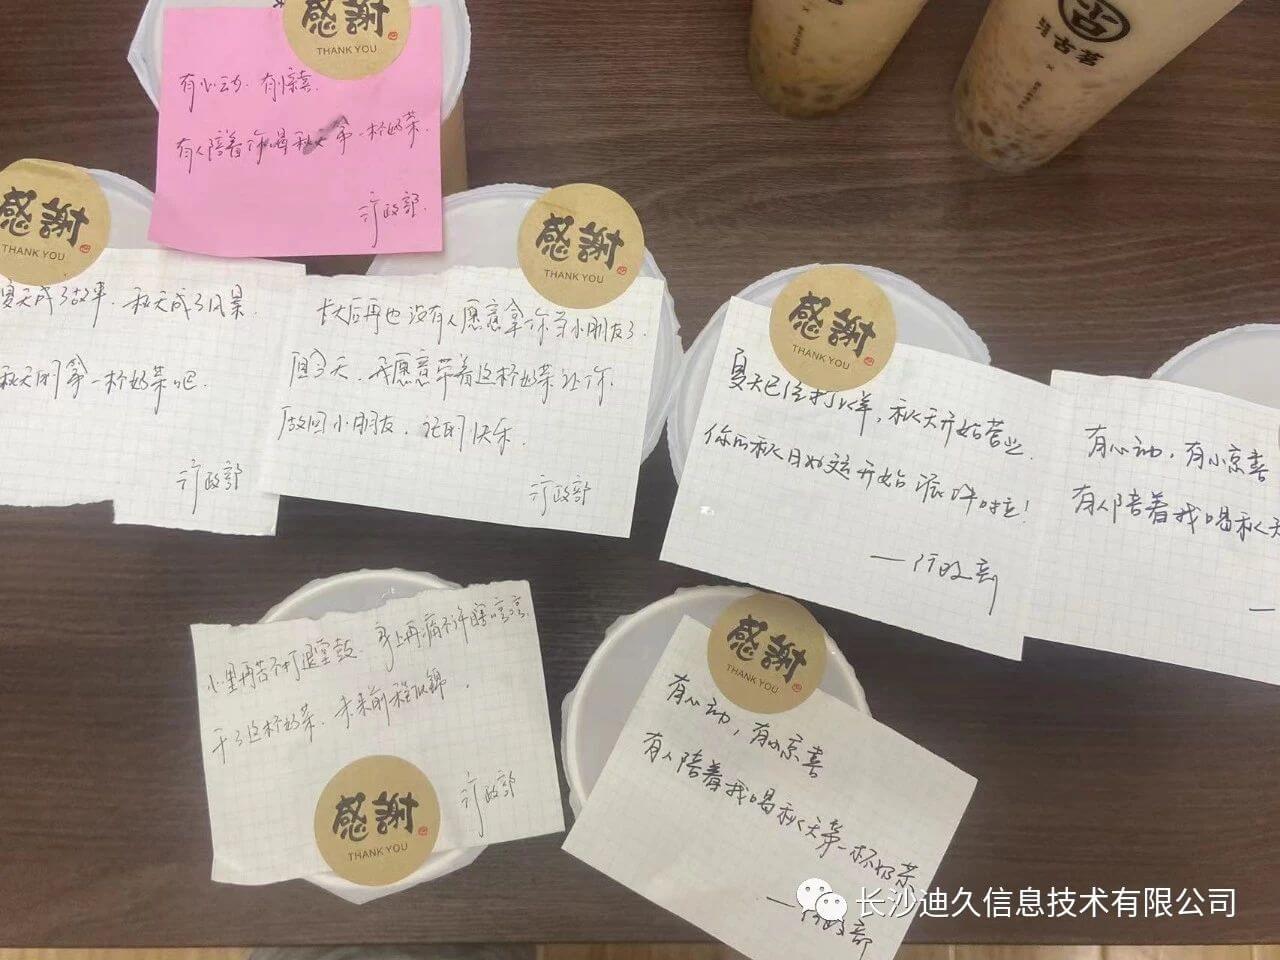 感謝
THANK YOU
有心动.有惊喜.
有人陪着你喝秋天第一杯奶茶.
行政部.
古茗
感謝
THANK YOU
夏天成了故事.秋天成了风景.
秋天的第一杯奶茶吧.
行政部
感謝
THANK YOU
长大后再也没有人愿意拿你当小朋友了.
但今天,我愿意带着这杯奶茶让你.
做回小朋友,记的快乐.
行政部
感謝
THANK YOU
夏天已经打烊,秋天开始营业.
你的秋日如这开始派件啦!
—行政部
有心动,有小惊喜
有人陪着我喝秋天
心里再苦不打退堂鼓.身上再痛不许瞎哼哼.
干了这杯奶茶.未来前程似锦.
行政部
感謝
THANK YOU
感謝
THANK YOU
有心动,有小惊喜
有人陪着我喝秋天第一杯奶茶
—行政部
长沙迪久信息技术有限公司